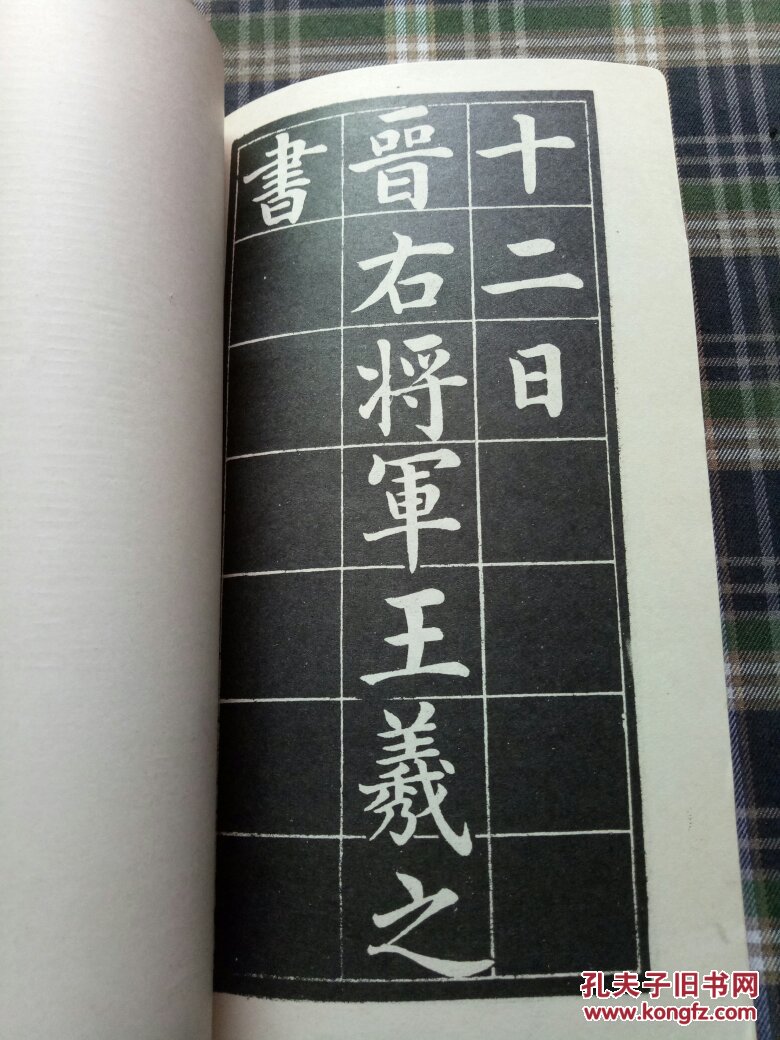 十二日
晉右将軍王羲之
書
孔夫子旧书网
www.kongfz.com